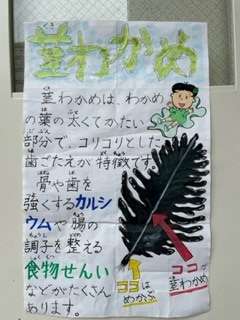 茎わかめ
茎わかめは、わかめ
の葉の太くてかたい
部分で、コリコリとした
歯ごたえが特徴です。
骨や歯を
強くするカルシ
ウムや腸の
調子を整える
食物せんい
などがたくさん
あります。
ココが
茎わかめ
ココは
めかぶ